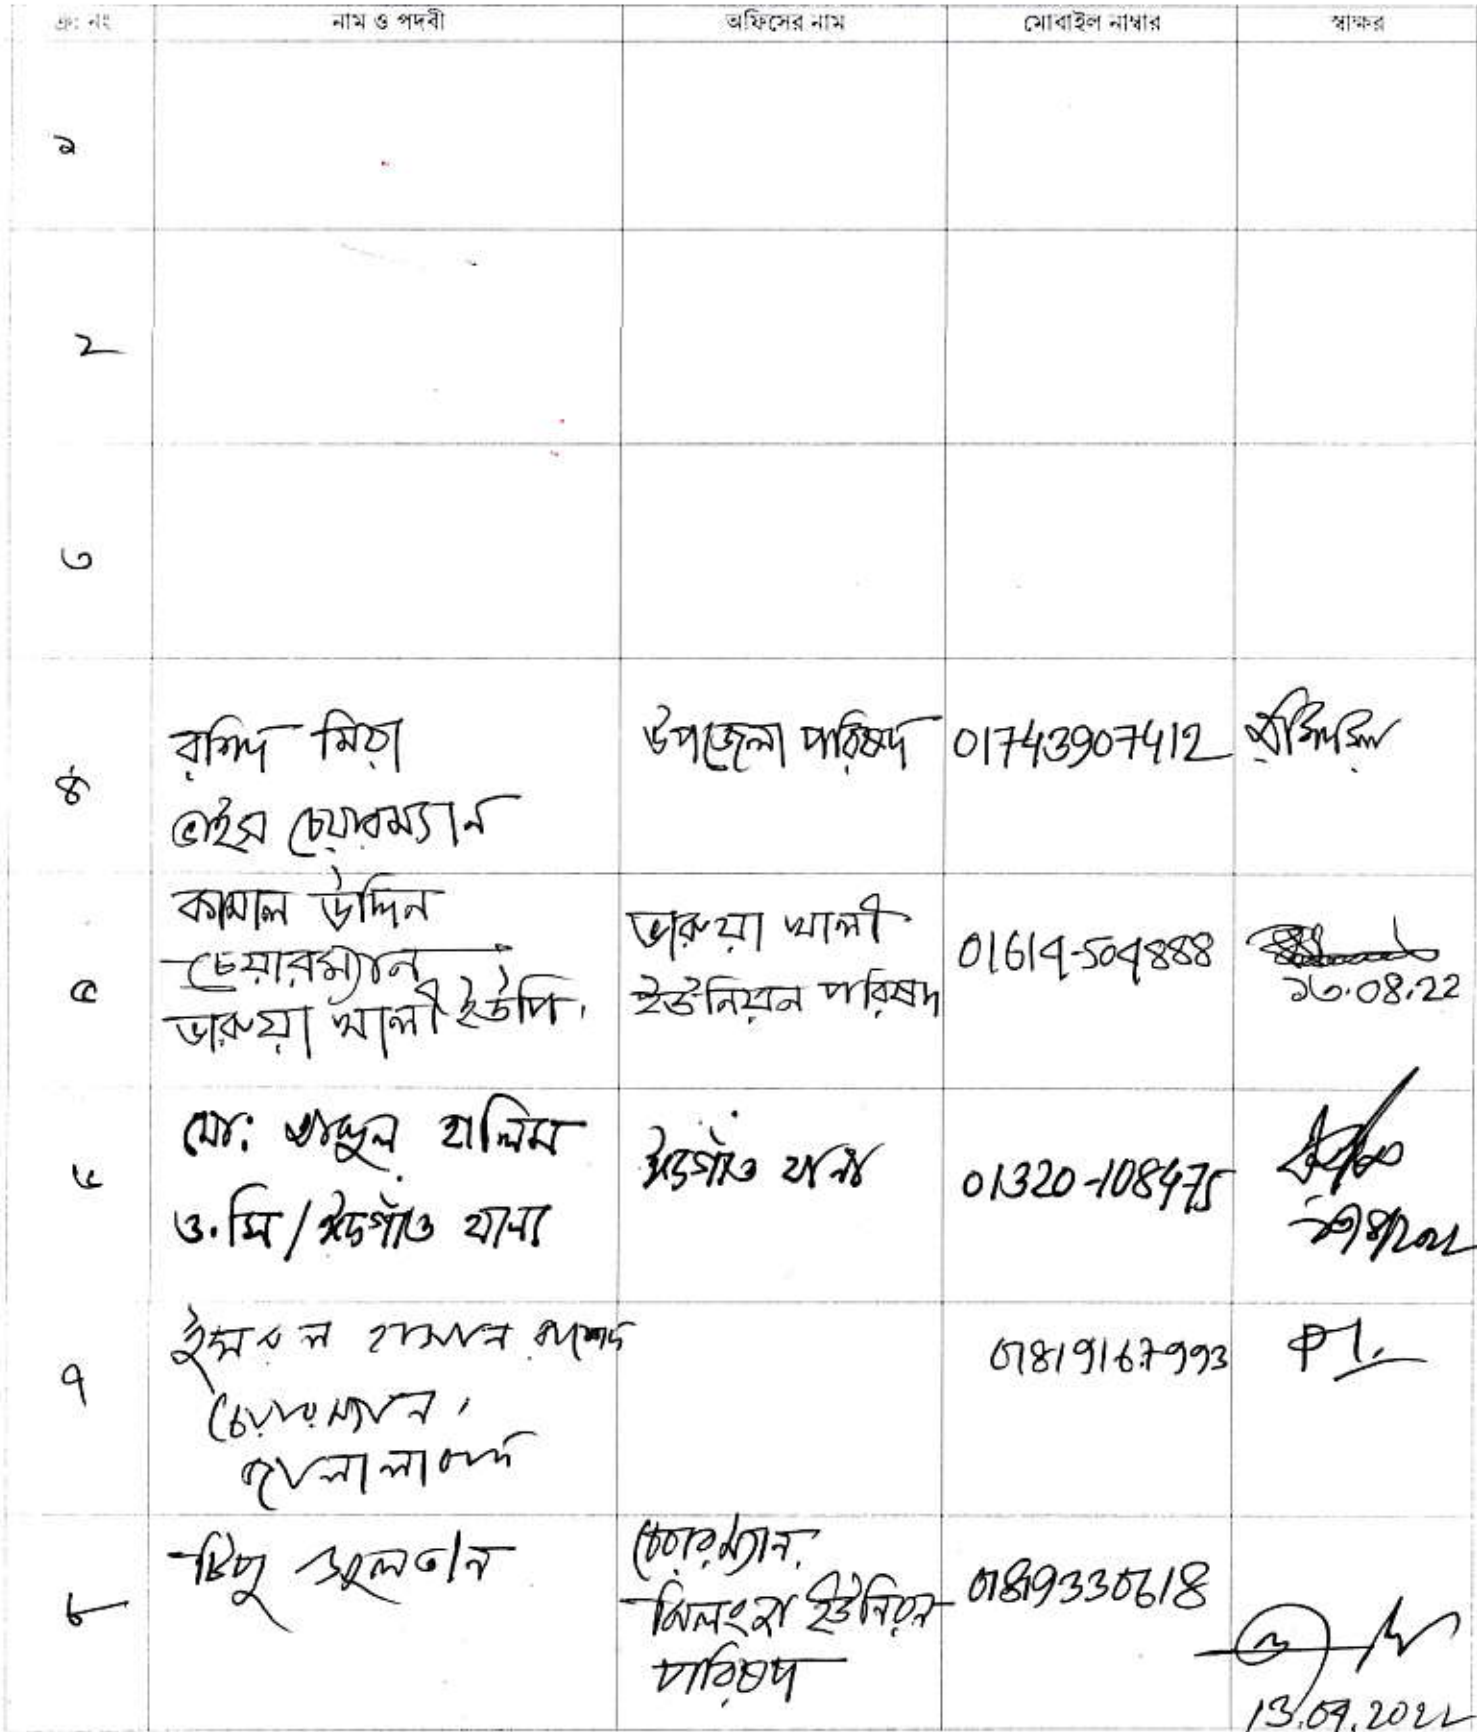 ক্র: নং নাম ও পদবী অফিসের নাম মোবাইল নাম্বার স্বাক্ষর
১
২
৩
৪
রশিদ মিয়া
ভাইস চেয়ারম্যান
উপজেলা পরিষদ
01743907412
৫
কামাল উদ্দিন
চেয়ারম্যান
ভারুয়া খালী ইউপি।
ভারুয়া খালী
ইউনিয়ন পরিষদ
01614-504888
১৩.08.22
৬
মো: আব্দুল হালিম
ও.সি / ঈদগাঁও থানা
ঈদগাঁও থানা
01320-108475
৭
ইমরুল হাসান রাশেদ
চেয়ারম্যান,
জালালাবাদ
01819167993
৮
টিপু সুলতান
চেয়ারম্যান,
ঝিলংজা ইউনিয়ন
পরিষদ
01819330618
13.04.2022